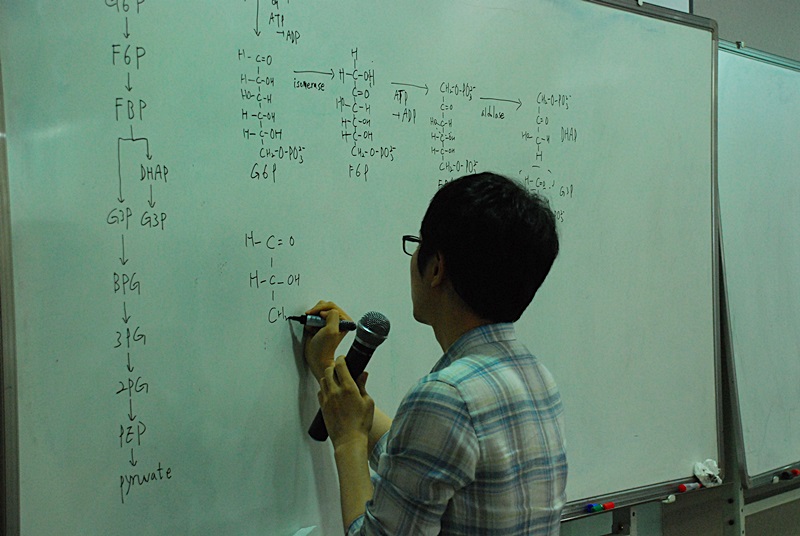 G6P
F6P
FBP
DHAP
G3P G3P
BPG
3PG
2PG
PEP
pyruvate
ATP
→ADP
H-C=O
H-C-OH
HO-C-H
H-C-OH
H-C-OH
CH₂-O-PO₃²⁻
G6P
isomerase
H
H-C-OH
C=O
HO-C-H
H-C-OH
H-C-OH
CH₂-O-PO₃²⁻
F6P
ATP
→ADP
CH₂-O-PO₃²⁻
C=O
HO-C-H
H-C-OH
H-C-OH
CH₂-O-PO₃²⁻
aldolase
CH₂-O-PO₃²⁻
C=O
HO-C-H
H
DHAP
H-C=O
G3P
H-C=O
H-C-OH
CH₂